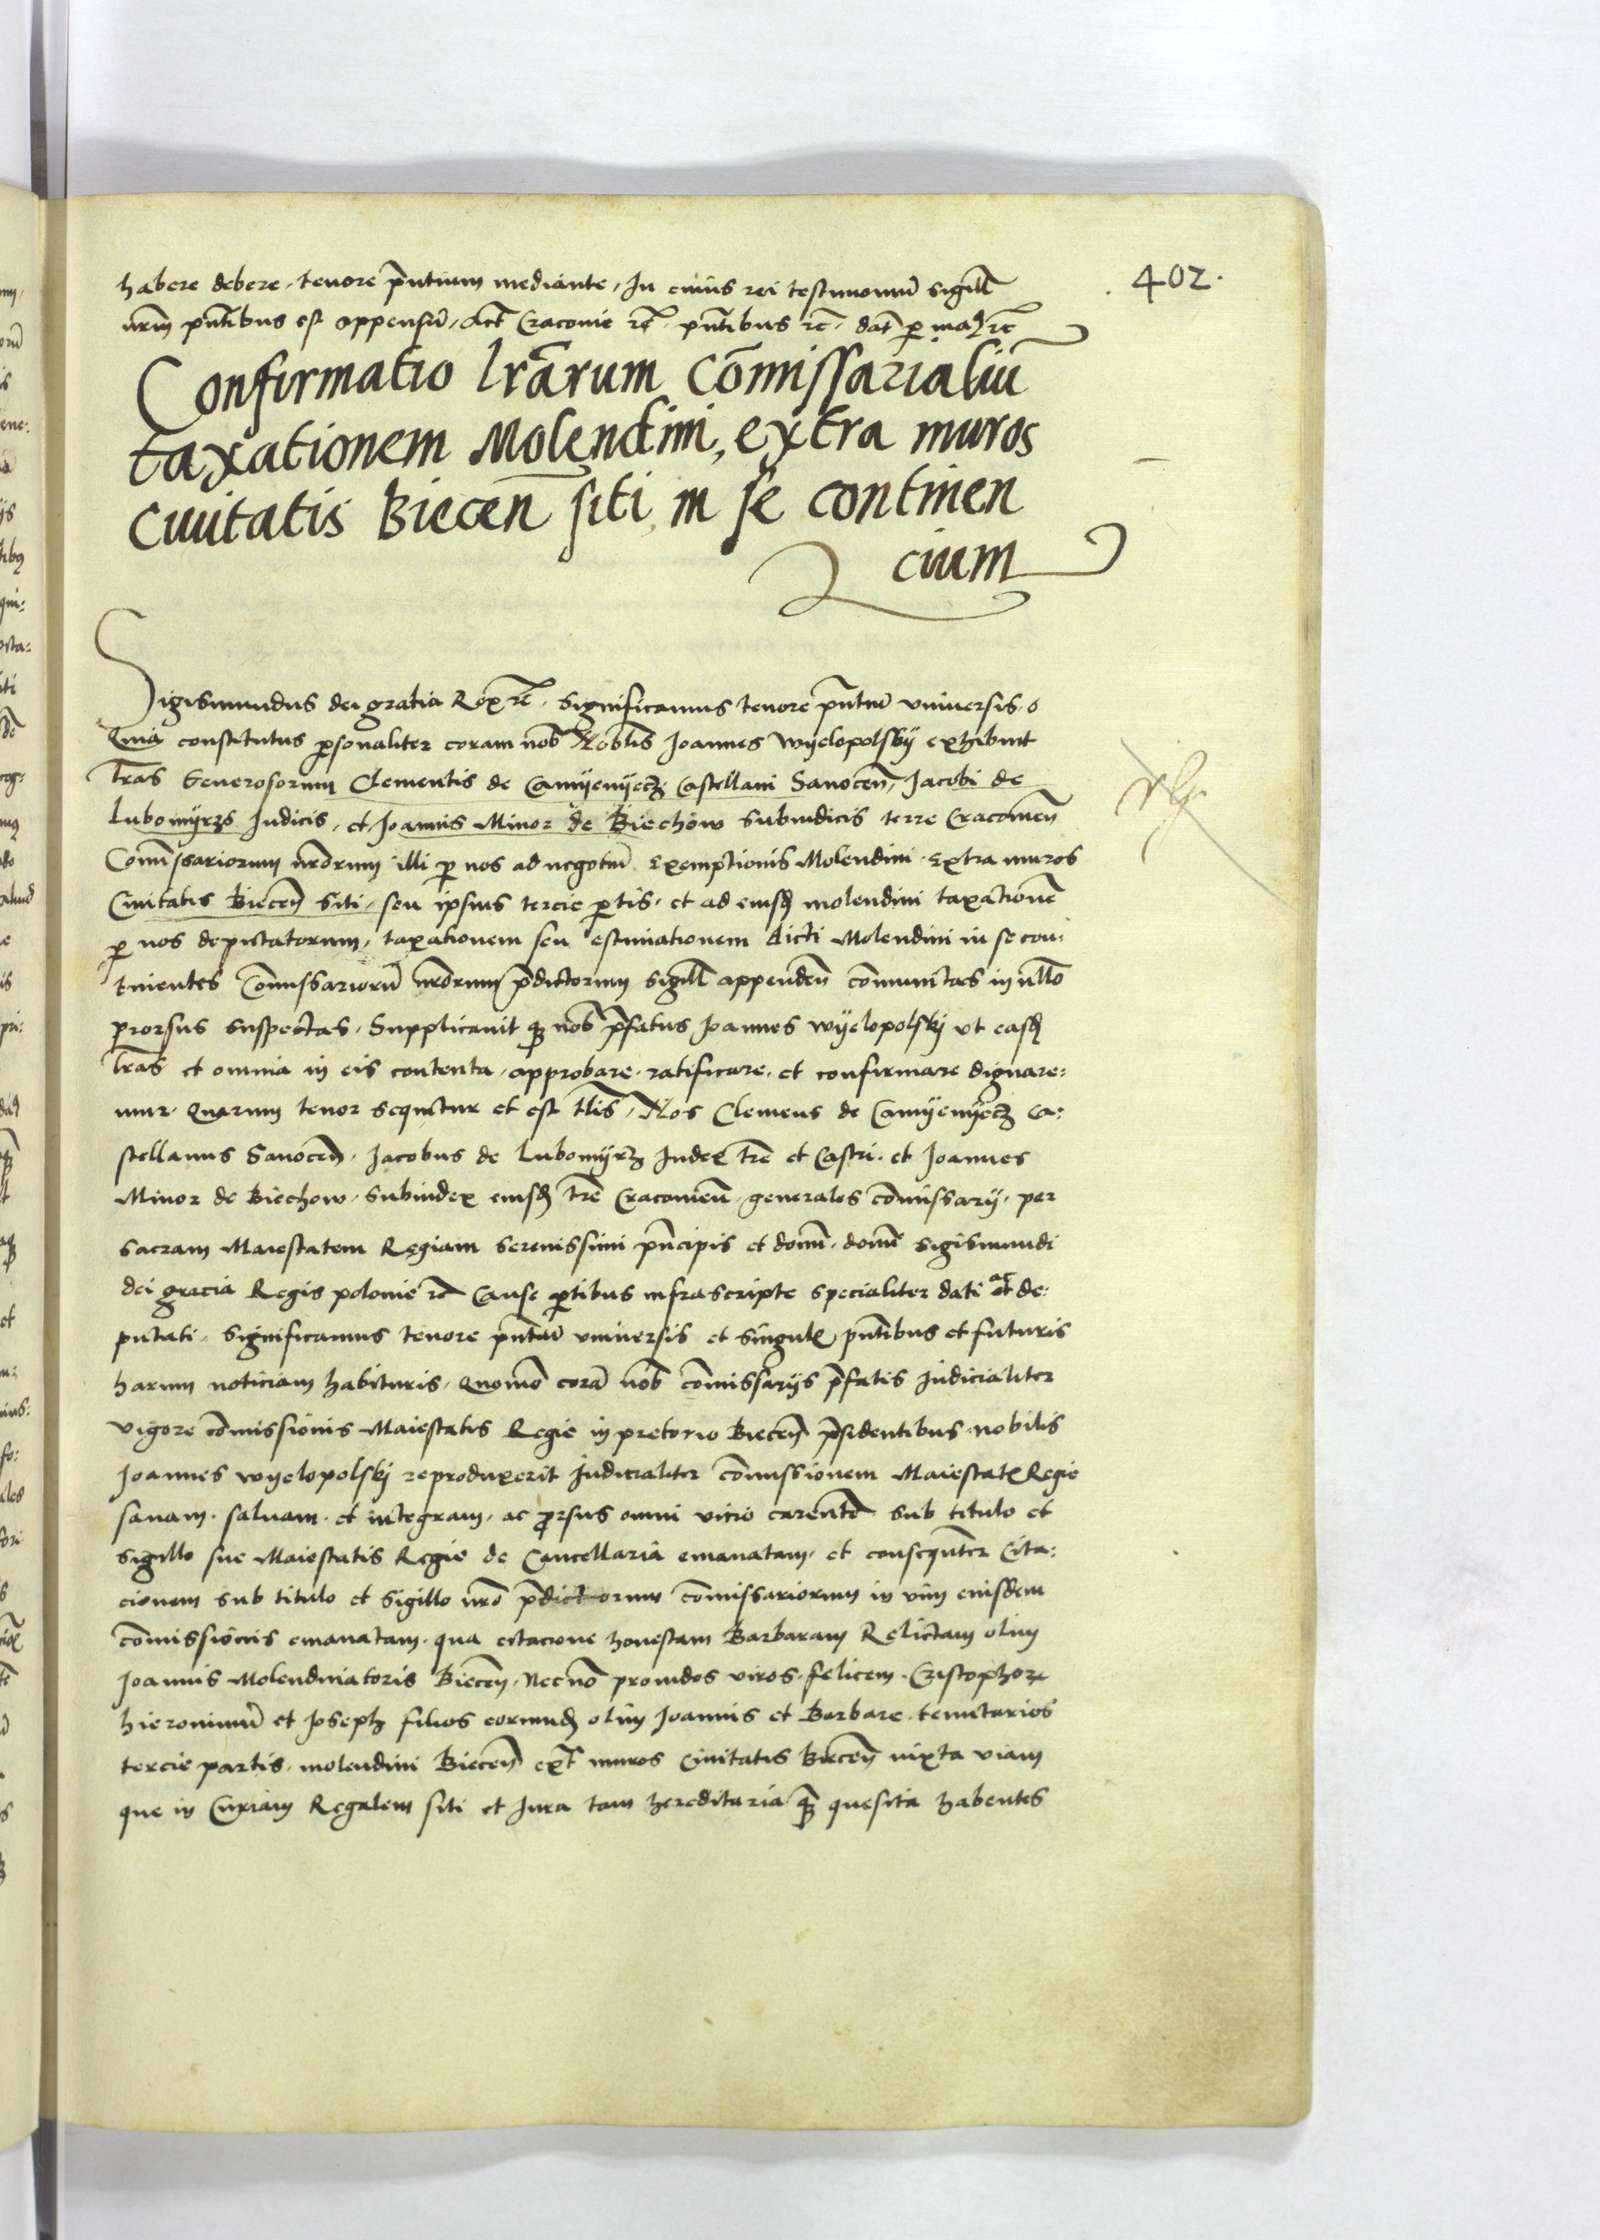 402.
habere debere, tenore p̄ntium mediante, In cuius rei testimoniū sigill̄
nr̄m pn̄tibus est appensū, Act̄ Cracovie rc̄. pn̄tibus rc̄. dat̄ p̱ maḡ rc̄
Confirmatio lr̄arum Com̄issarialiū
taxationem Molendini, extra muros
Civitatis Biecen̄ siti, in se continen
cium
Sigismundus dei gratia Rex rc̄. Significamus tenore pn̄tiū vniversis.
Quia constitutus p̱sonaliter coram nob̄ Nobilis Joannes Wyelopolsky exhibuit
lr̄as Generosorum Clementis de Camyenyecz Castellani Sanocen̄, Jacobi de
Lubomyrzs Iudicis, et Joannis Minor de Biechow Subiudicis terre Cracovien̄
Com̄issariorum nr̄orum illi p̱ nos ad negotiū Exemptionis Molendini Extra muros
Civitatis Biecen̄ siti, seu ipsius tercie p̱tis, et ad eiusd̄ molendini taxationē
p̱ nos deputatorum, taxationem seu estimationem dicti Molendini in se con:
tinentes Com̄issariorū nr̄orum p̄dictorum sigill̄ appenden̄ com̄unitas in nullo
prorsus suspectas, Supplicauit q̱ nob̄ p̄fatus Joannes Wyelopolskj vt easd̄
lr̄as et omnia in eis contenta, approbare, ratificare, et confirmare dignare:
mur. Quarum tenor sequitur et est tl̄is, Nos Clemens de Camyenyecz Ca:
stellanus Sanocen̄, Jacobus de Lubomyrz Iudex tr̄e et Castri, et Joannes
Minor de Biechow, Subiudex eiusd̄ tr̄e Cracovien̄, generales com̄issarij, per
sacram Maiestatem Regiam Serenissimi pn̄cipis et domī. domī Sigismundi
dei gracia Regis polonie rc̄ Cause p̱tibus infrascripte specialiter dati ac et de:
putati, Significamus tenore pn̄tiū vniversis et singul̄ pn̄tibus et futuris
harum noticiam habituris, Quomō corā nob̄ com̄issarijs p̄fatis Iudicialiter
vigore com̄issionis Maiestatis Regie in pretorio Biecen̄ p̄sidentibus, nobilis
Joannes wyelopolskj reproduxerit Iudicialiter com̄issionem Maiestatis Regie
sanam, saluam, et integram, ac p̱rsus omni vicio carentē sub titulo et
sigillo sue Maiestatis Regie de Cancellaria emanatam, et consequn̄ter Cita:
cionem sub titulo et sigillo nr̄o p̄dictorum com̄issariorum in vim eiusdem
com̄issionis emanatam, qua citacione honestam Barbaram Relictam olim
Joannis Molendinatoris Biecen̄, Nec nō prouidos viros, felicem, Cristophorū
hieronimū et Joseph filios eorund̄ olim Joannis et Barbare, tenutarios
tercie partis, molendini Biecen̄ ext̄ muros Civitatis Biecen̄ iuxta viam
que in Curiam Regalem siti et Iura tam hereditaria q̄ quesita habentes